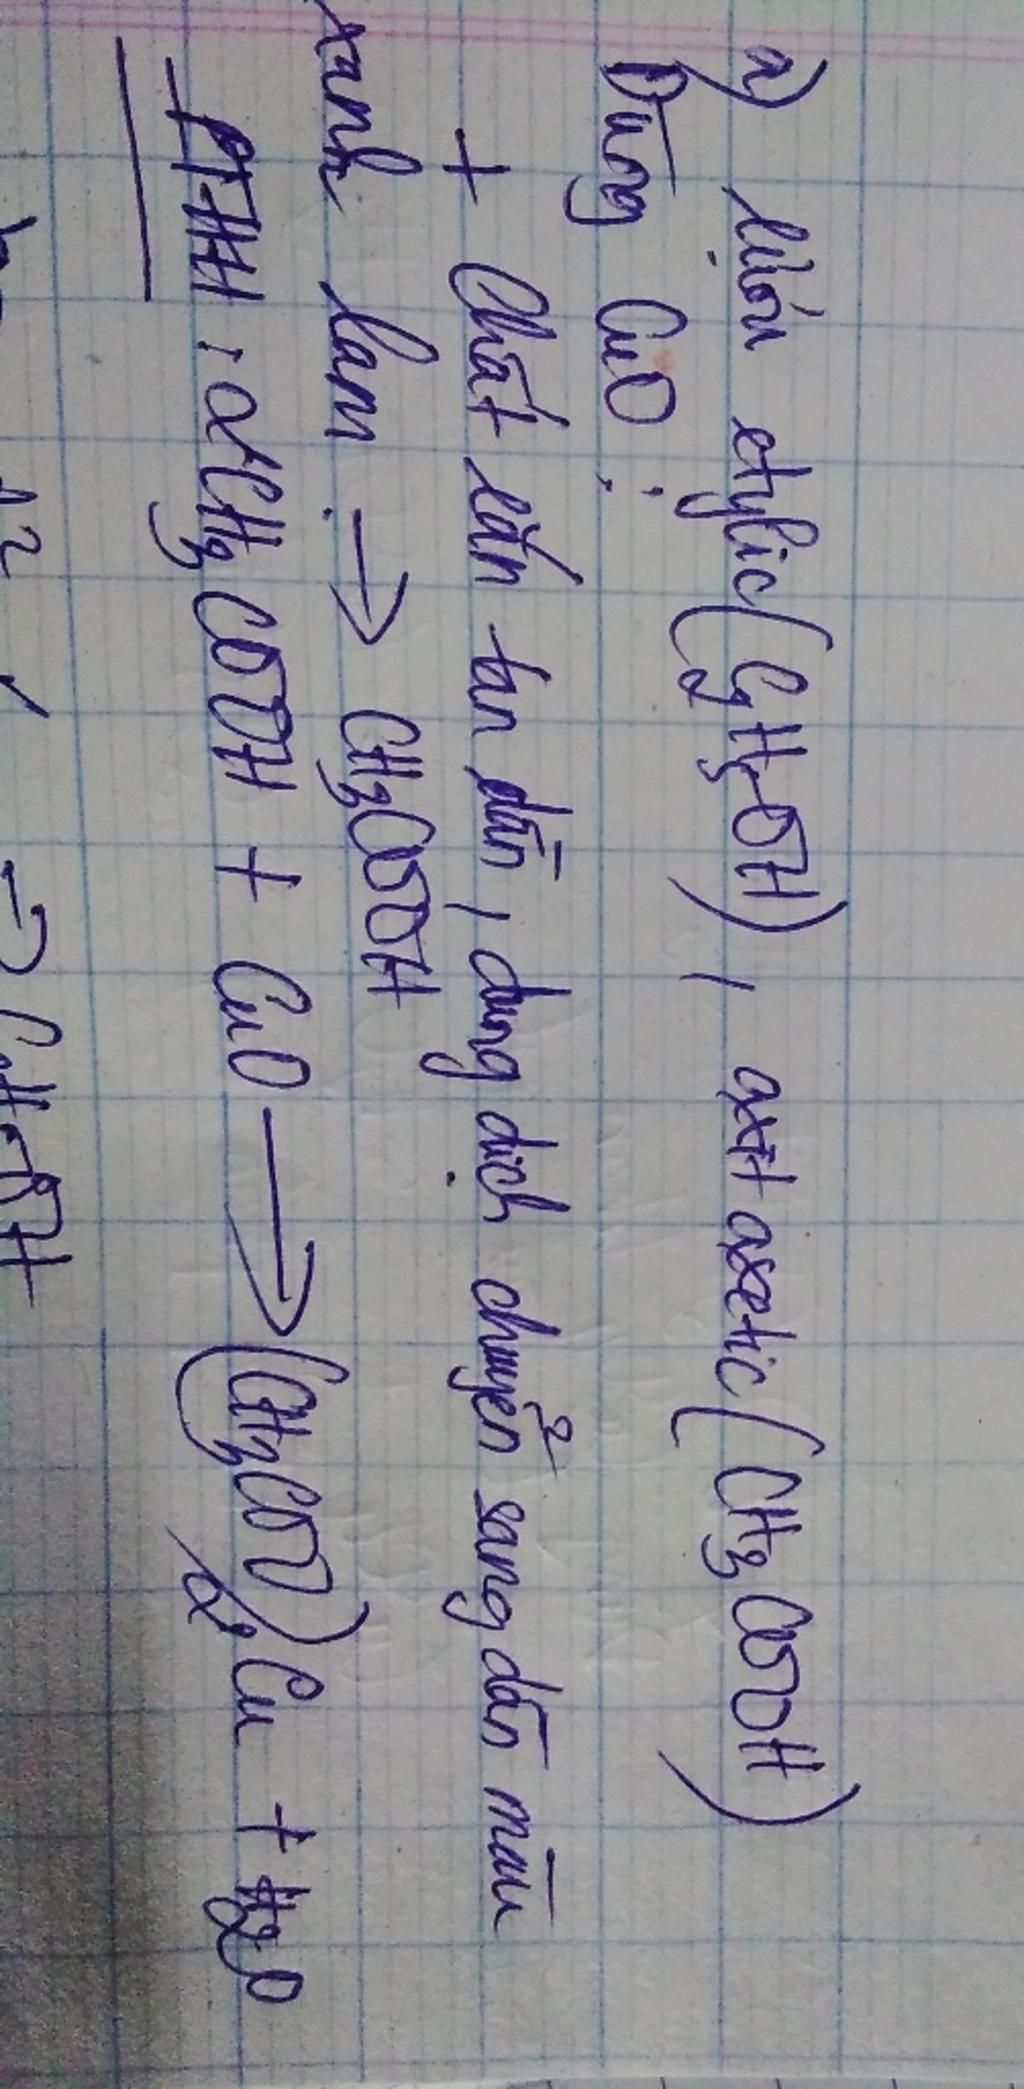 a) rượu etylic (C2H5OH), axit axetic (CH3COOH)
Dùng CuO:
+ Chất rắn tan dần, dung dịch chuyển sang dần màu
xanh lam. → CH3COOH
PTHH: 2CH3COOH + CuO → (CH3COO)2Cu + H2O